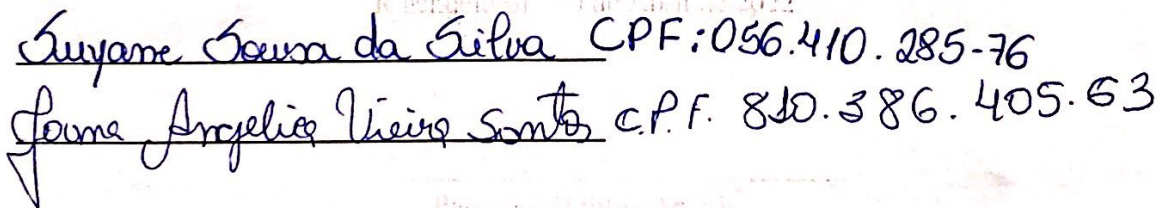 Suyane Sousa da Silva CPF:056.410.285-76
Joana Angelica Vieira Santos C.P.F. 810.386.405.63